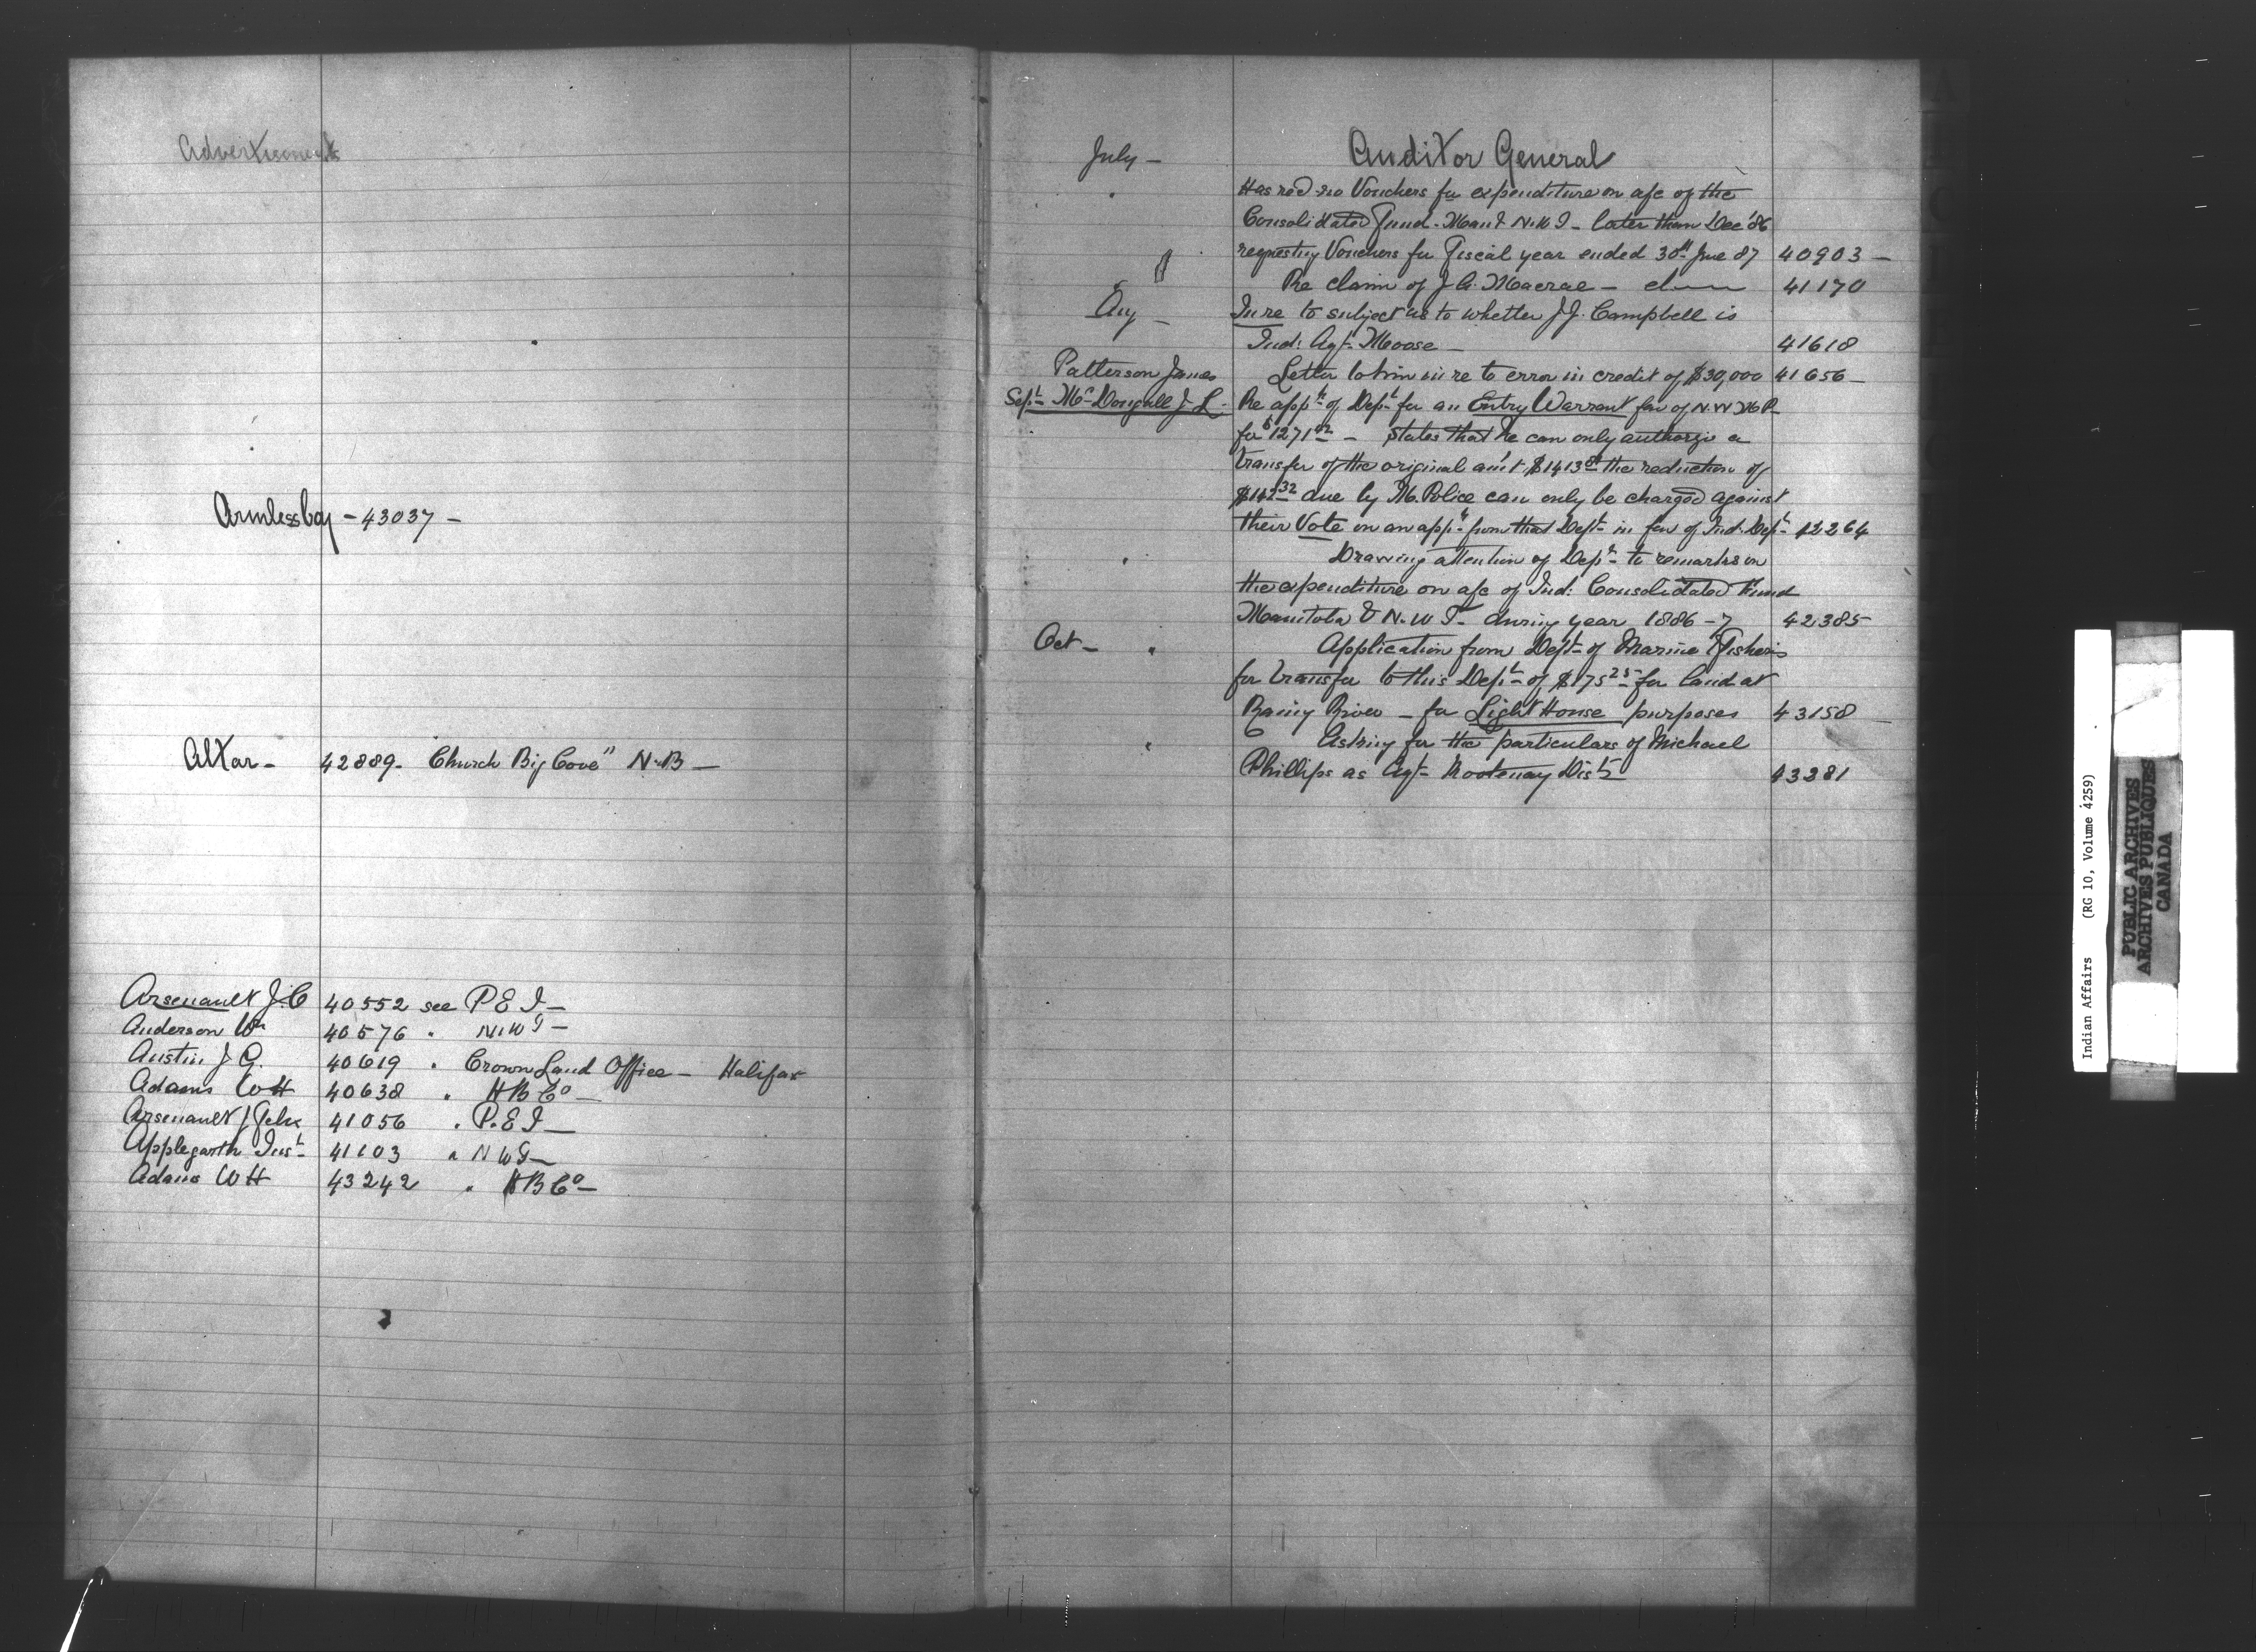 Advertisements
Armlessboy - 43037 -
Altar - 42889 - Church Big Cove" N.B -
Arsenault J.C 40552 see P E I -
Anderson Wm 40576 " N.W T -
Austin J G. 40619 " Crown Land Office - Halifax
Adams W H 40638 " H B Co -
Arsenault J Felix 41056 " P.E I -
Applegarth Inst 41103 " N W T -
Adams W H 43242 " H B Co -
July - Auditor General
" Has recd no Vouchers for expenditure on a/c of the
Consolidated Fund - Man & N.W T - later than Dec '86
requesting Vouchers for Fiscal year ended 30th June 87 40903 -
Re claim of J. A. Macrae - 41170
Aug - In re to subject as to whether J J. Campbell is
Ind: Agt. Moose - 41618
Patterson James Letter to him in re to error in credit of $30,000 41656 -
Sept - McDougall J L - Re appn of Dept for an Entry Warrant fav of N.W M P
for $1271 - States that he can only authorize a
transfer of the original am't $1413 the reduction of
$142 32 due by M. Police can only be charged against
their Vote on an appn from that Dept in fav of Ind. Dept - 42264
" Drawing attention of Dept to remarks on
the expenditure on a/c of Ind: Consolidated Fund
Manitoba & N.W T - during year 1886-7 42385
Oct - " Application from Dept of Marine & Fisheries
for transfer to this Dept of $175 25 for land at
Rainy River - for Light House purposes 43158 -
" Asking for the particulars of Michael
Phillips as Agt Kootenay Dist 43281
Indian Affairs (RG 10, Volume 4259)
PUBLIC ARCHIVES
ARCHIVES PUBLIQUES
CANADA